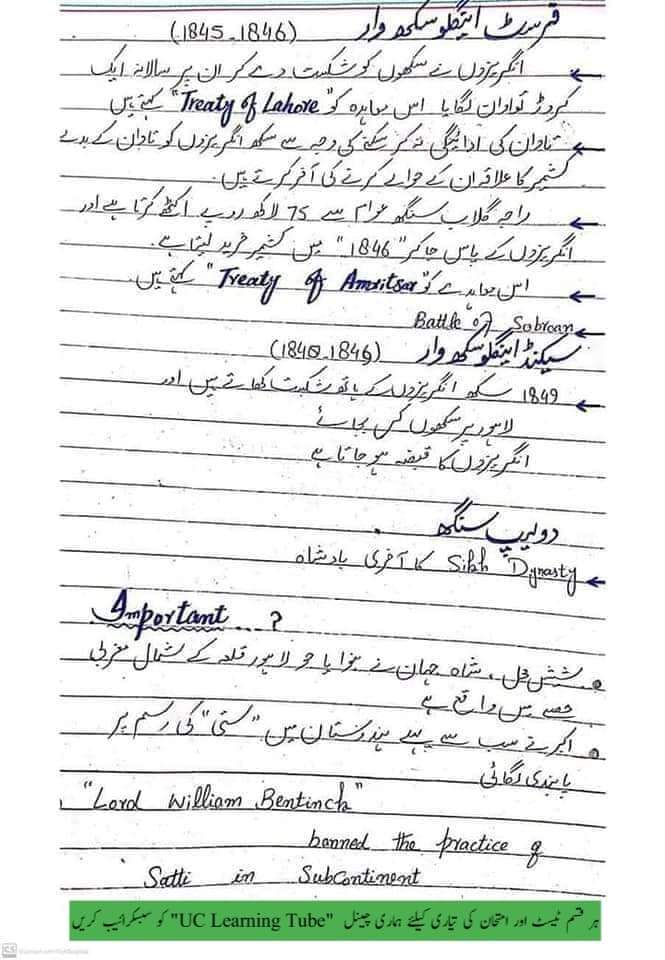 فرسٹ اینگلو سکھ وار (1845-1846)
انگریزوں نے سکھوں کو شکست دے کر ان پر سالانہ ایک
کروڑ تاوان لگایا اس معاہدہ کو "Treaty of Lahore" کہتے ہیں
تاوان کی ادائیگی نہ کر سکنے کی وجہ سے سکھ انگریزوں کو تاوان کے بدلے
کشمیر کا علاقہ ان کے حوالے کرنے کی آفر کرتے ہیں.
راجہ گلاب سنگھ عوام سے 75 لاکھ روپے اکٹھے کرتا ہے اور
انگریزوں کے پاس جا کر "1846" میں کشمیر خرید لیتا ہے.
اس معاہدے کو "Treaty of Amritsar" کہتے ہیں.
Battle of Sobroan
سیکنڈ اینگلو سکھ وار (1840-1846)
1849 سکھ انگریزوں کے ہاتھ شکست کھاتے ہیں اور
لاہور پر سکھوں کی بجائے
انگریزوں کا قبضہ ہو جاتا ہے
دولیپ سنگھ
Sikh Dynasty کا آخری بادشاہ
Important...?
شیش محل، شاہ جہان نے بنوایا جو لاہور قلعہ کے شمال مغربی
حصے میں واقع ہے
اکبر نے سب سے پہلے ہندوستان میں "ستی" کی رسم پر
پابندی لگائی
"Lord William Bentinck"
banned the practice of
Satti in Subcontinent
ہر قسم ٹیسٹ اور امتحان کی تیاری کیلئے ہماری چینل "UC Learning Tube" کو سبسکرائیب کریں
CS